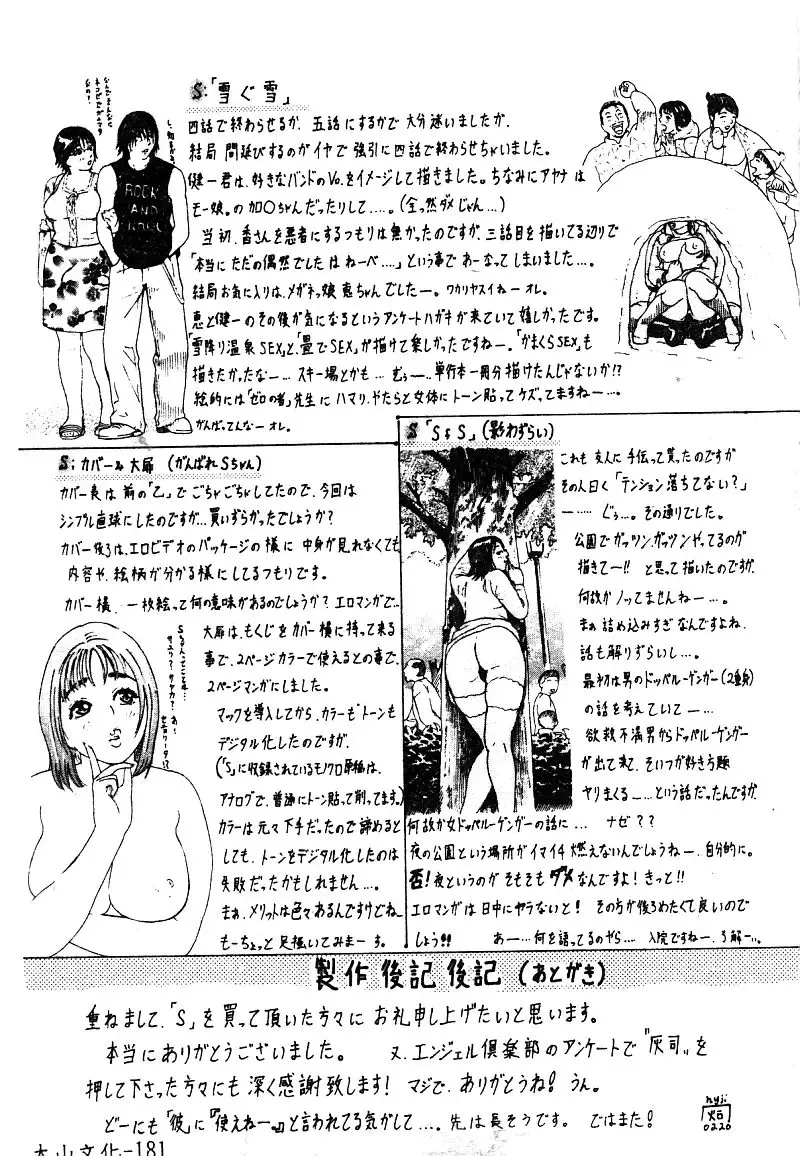 S:「雪ぐ雪」
四話で終わらせるか、五話にするかで大分迷いましたが、
結局 間延びするのがイヤで強引に四話で終わらせちゃいました。
健一君は、好きなバンドのVo.をイメージして描きました。ちなみにアヤナは
モー娘。の加〇ちゃんだったりして‥‥。(全っ然ダメじゃん…)
当初、香さんを悪者にするつもりは無かったのですが、三話目を描いてる辺りで
「本当にただの偶然でした はねーべ‥‥」という事で わーなってしまいました‥‥。
結局お気に入りは、メガネっ娘 恵ちゃんでしたー。ワカリヤスイねーオレ。
恵と健一のその後が気になるというアンケートハガキが来ていて嬉しかったです。
「雪降り温泉SEX」と「畳でSEX」が描けて楽しかったですねー。「かまくらSEX」も
描きたかったなー… スキー場とかも … むぅー‥、単行本一冊分描けたんじゃないか!?
絵的には「ゼロの者」先生に ハマリ、やたらと女体にトーン貼ってケズってますねー…。
がんばってんなーオレ。
ROCK
AND
ROLL
S:カバー&大扉 (がんばれSちゃん)
カバー表は 前の「乙」で ごちゃごちゃしてたので、今回は
シンプル直球にしたのですが…買いずらかったでしょうか?
カバー後ろは、エロビデオのパッケージの様に 中身が見れなくても
内容や、絵柄が分かる様にしてるつもりです。
カバー横、一枚絵って何の意味があるのでしょうか?エロマンガで…
大扉は、もくじをカバー横に持って来る
事で、2ページカラーで使えるとの事で、
2ページマンガにしました。
マックを導入してから、カラーもトーンも
デジタル化したのですが、
(「S」に収録されているモノクロ原稿は、
アナログで、普通にトーン貼って削ってます)
カラーは元々下手だったので諦めると
しても、トーンをデジタル化したのは
失敗だったかもしれません…。
まぁ、メリットは色々あるんですけどね、
もーちょっと 足掻いてみまーす。
S「S&S」(影わずらい)
これも 友人に 手伝って貰ったのですが
その人曰く「テンション落ちてない?」
ー‥‥ ぐぅ…。その通りでした。
公園でガッツン、ガッツンやってるのが
描きてー!! と思って描いたのですが、
何故かノッてませんねー…。
まぁ 詰め込みすぎなんですよね、
話も解りずらいし…。
最初は男のドッペルーゲンガー(2重身)
の話を考えていてー…
欲求不満男からドッペルーゲンガー
が出て来て、そいつが好き方題
ヤリまくるー…という話だったんですが、
何故か女ドッペルーゲンガーの話に… ナゼ??
夜の公園という場所がイマイチ 燃えないんでしょうねー、自分的に。
否!夜というのが そもそもダメなんですよ!きっと!!
エロマンガは日中にヤラないと! その方が後ろめたくて良いので
しょう!! あー…何を語ってるのやら… 入院ですねー、了解ー…。
製作後記後記(あとがき)
重ねまして、「S」を買って頂いた方々に お礼申し上げたいと思います。
本当にありがとうございました。 又、エンジェル倶楽部のアンケートで『灰司』を
押して下さった方々にも 深く感謝致します! マジで、ありがとうね! うん。
どーにも「彼」に『使えねー。』と言われてる気がして‥‥。先は長そうです。 ではまた!
0220
大山文化-181